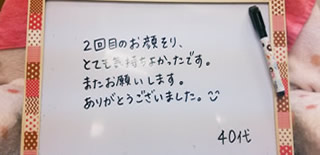 2回目のお顔そり、
とても気持ちよかったです。
またお願いします。
ありがとうございました。
40代